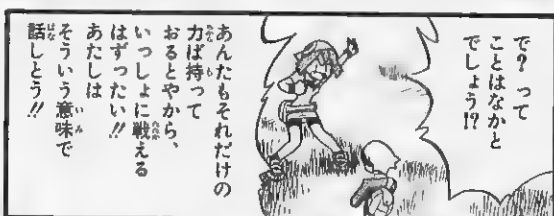 で？って
ことはなかと
でしょう!?
あんたもそれだけの
力ば持って
おるとやから、
いっしょに戦える
はずったい!!
あたしは
そういう意味で
話しとう!!